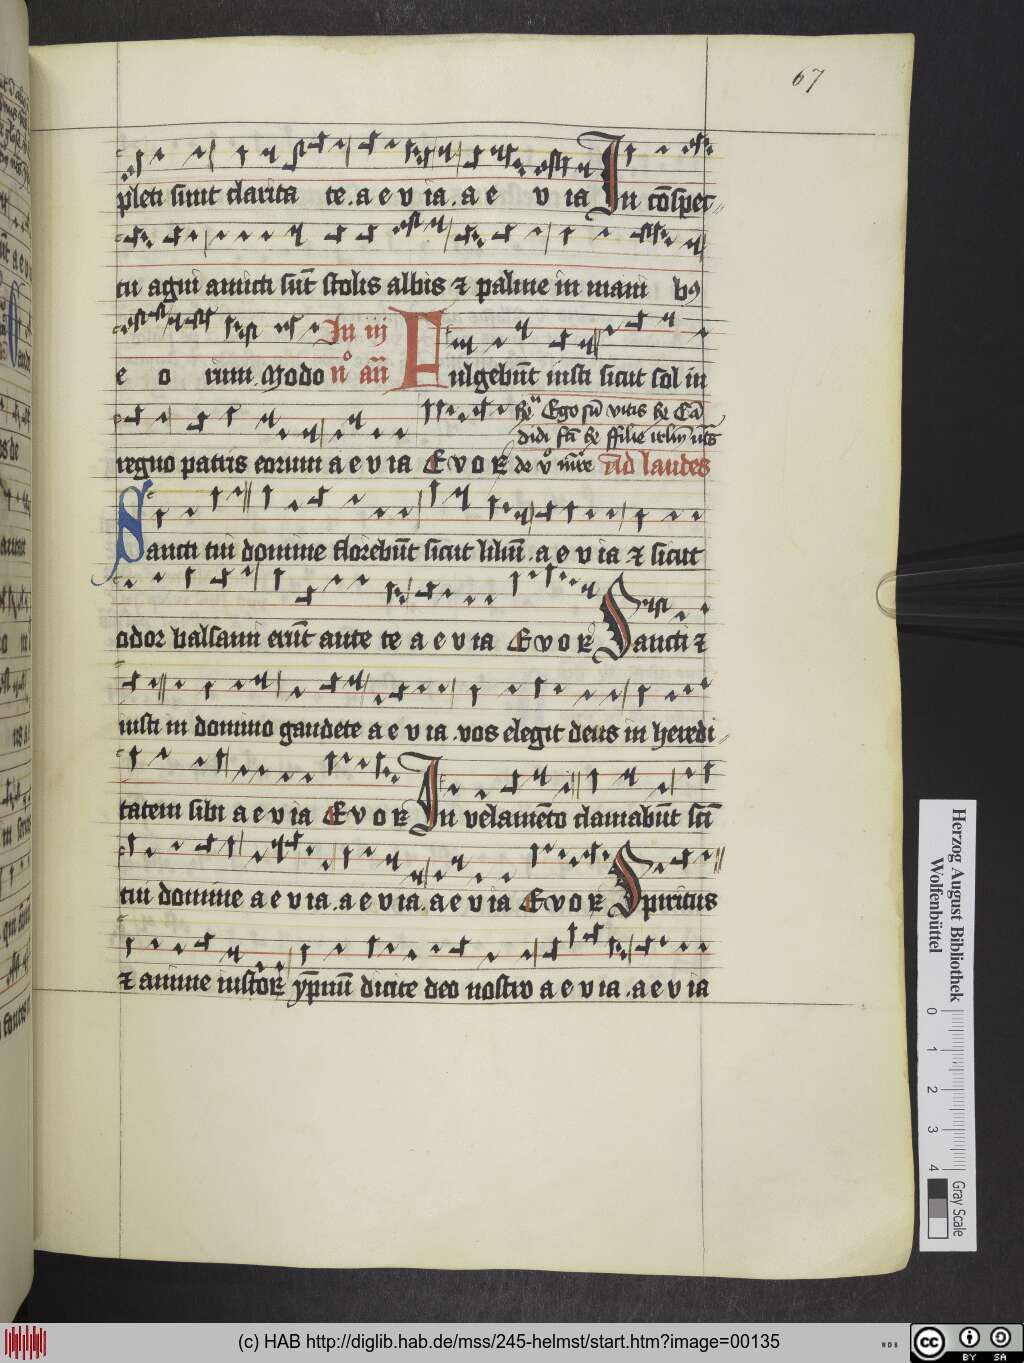 67
pleti sunt clarita te . a e v ia . a e v ia In cōspec
tu agni amicti sūt stolis albis ⁊ palme in mani bꝰ
e o rum . Modo In iij n̊ añ Fulgebūt iusti sicut sol in
regno patris eorum a e v ia E v o
Ego sū vitis
Ad laudes
Sancti tui domine florebūt sicut liliū . a e v ia ⁊ sicut
odor balsami erūt ante te a e v ia E v o Sancti ⁊
iusti in domino gaudete a e v ia . vos elegit deus in heredi
tatem sibi a e v ia E v o In velamēto clamabūt scī
tui domine a e v ia . a e v ia . a e v ia E v o Spiritus
⁊ anime iustoꝝ ympnū dicite deo nostro a e v ia . a e v ia
Herzog August Bibliothek
Wolfenbüttel
0 1 2 3 4
Gray Scale
(c) HAB http://diglib.hab.de/mss/245-helmst/start.htm?image=00135
WDB
cc BY SA